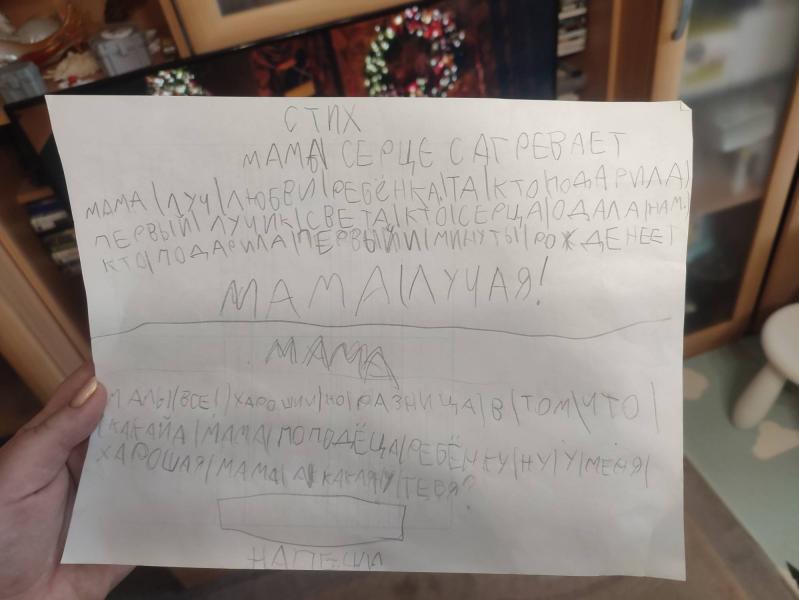 СТИХ
МАМЫ СЕРЦЕ САГРЕВАЕТ
МАМА|ЛУЧ|ЛЮБВИ|РЕБЁНКА|ТА|КТО|ПОДАРИЛА|
ПЕРВЫЙ|ЛУЧИК|СВЕТА|КТО|СЕРЦА|ОДАЛА|НАМ.
КТО|ПОДАРИЛА|ПЕРВЫЙИ|МИНУТЫ|РОЖДЕНЕЕ
МАМА|ЛУЧАЯ!
МАМА
МАМЫ|ВСЕ|ХАРОШИИ|НО|РАЗНИЦА|В|ТОМ|ЧТО|
КАКАЙА|МАМА|ПОПОДЁЦА|РЕБЁНКУ|НУ|У|МЕНЯ|
ХАРОШАЯ|МАМА|А|КАКАЯ|У|ТЕБЯ?